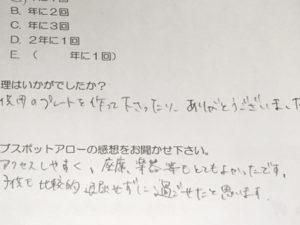 B. 年に2回
C. 年に3回
D. 2年に1回
E. (　　年に1回)
理はいかがでしたか？
供用のプレートを作って下さったり、ありがとうございました
プスポットアローの感想をお聞かせ下さい。
アクセスしやすく、座席、楽器等もとてもよかったです。
子供も比較的退屈せずに過ごせたと思います。